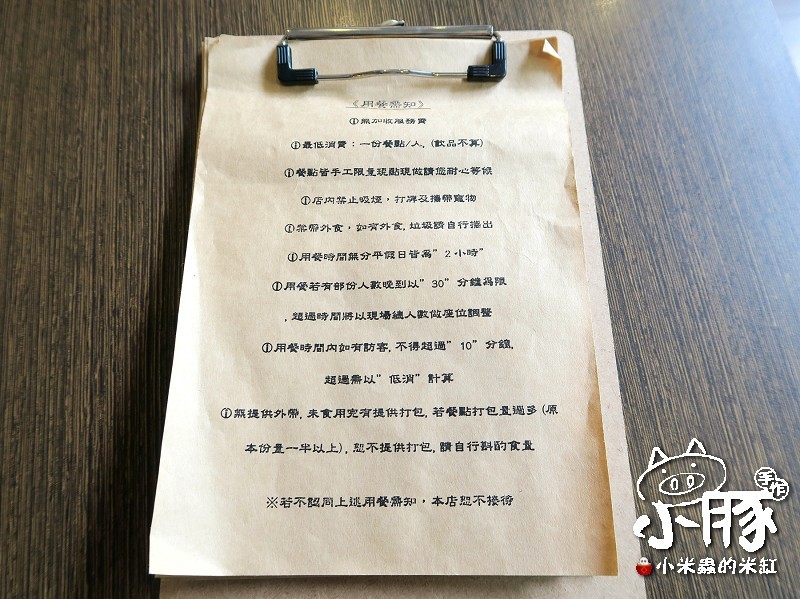 《用餐需知》
ⓘ無加收服務費
ⓘ最低消費：一份餐點/人. (飲品不算)
ⓘ餐點皆手工限量現點現做請您耐心等候
ⓘ店內禁止吸煙，打牌及攜帶寵物
ⓘ禁帶外食，如有外食. 垃圾請自行攜出
ⓘ用餐時間無分平假日皆為” 2 小時”
ⓘ用餐若有部份人數晚到以” 30” 分鐘為限
. 超過時間將以現場總人數做座位調整
ⓘ用餐時間內如有訪客. 不得超過” 10” 分鐘.
超過需以” 低消” 計算
ⓘ無提供外帶. 未食用完有提供打包. 若餐點打包量過多 (原
本份量一半以上). 恕不提供打包. 請自行斟酌食量
※若不認同上述用餐需知，本店恕不接待
手作
小豚
小米蟲的米缸